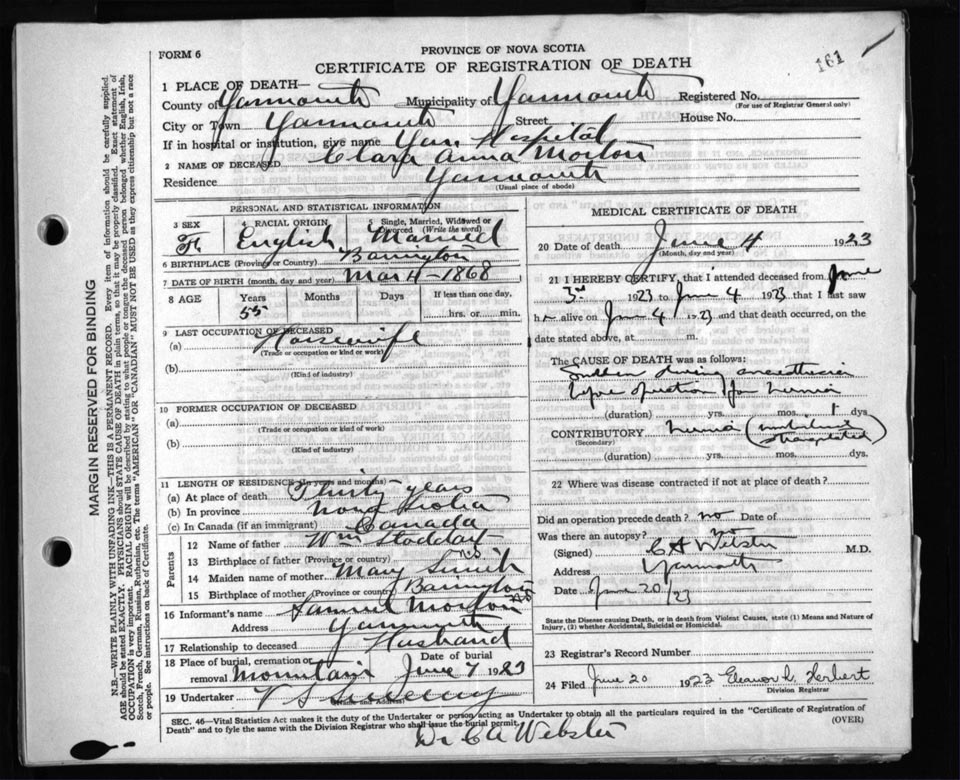 161
FORM 6
PROVINCE OF NOVA SCOTIA
CERTIFICATE OF REGISTRATION OF DEATH
1 PLACE OF DEATH—
County of Yarmouth Municipality of Yarmouth Registered No.
(For use of Registrar General only)
City or Town Yarmouth Street House No.
If in hospital or institution, give name Yar. Hospital
2 NAME OF DECEASED Clara Anna Morton
Residence Yarmouth
(Usual place of abode)
PERSONAL AND STATISTICAL INFORMATION
3 SEX 4 RACIAL ORIGIN 5 Single, Married, Widowed or Divorced (Write the word)
F English Married
6 BIRTHPLACE (Province or Country) Barrington
7 DATE OF BIRTH (month, day and year) Mar 4 - 1868
8 AGE Years Months Days If less than one day,
55 hrs. or min.
9 LAST OCCUPATION OF DECEASED
(a) Housewife
(Trade or occupation or kind or work)
(b)
(Kind of industry)
10 FORMER OCCUPATION OF DECEASED
(a)
(Trade or occupation or kind of work)
(b)
(Kind of industry)
11 LENGTH OF RESIDENCE (in years and months)
(a) At place of death Thirty years
(b) In province Nova Scotia
(c) In Canada (if an immigrant) Canada
Parents
12 Name of father Wm Stodday
13 Birthplace of father (Province or country) N.S
14 Maiden name of mother Mary Smith
15 Birthplace of mother (Province or country) Barrington N.S
16 Informant's name Samuel Morton
Address Yarmouth
17 Relationship to deceased Husband
18 Place of burial, cremation or removal Mountain Date of burial June 7 1923
19 Undertaker V S Sweeny
(Name and Address)
MEDICAL CERTIFICATE OF DEATH
20 Date of death June 4 1923
(Month, day and year)
21 I HEREBY CERTIFY, that I attended deceased from June
3rd 1923 to June 4 1923 that I last saw
h alive on June 4 1923 and that death occurred, on the
date stated above, at m.
The CAUSE OF DEATH was as follows:
Sudden during anaesthesia
before operation for hernia
(duration) yrs. mos. 1 dys
CONTRIBUTORY hernia (umbilical
(Secondary) strangulated)
(duration) yrs. mos. dys.
22 Where was disease contracted if not at place of death?
Did an operation precede death? no Date of
Was there an autopsy? no
(Signed) C A Webster M.D.
Address Yarmouth
Date June 20/23
State the Disease causing Death, or in death from Violent Causes, state (1) Means and Nature of Injury, (2) whether Accidental, Suicidal or Homicidal.
23 Registrar's Record Number
24 Filed June 20 1923 Eleanor L. Herbert
Division Registrar
SEC. 46—Vital Statistics Act makes it the duty of the Undertaker or person acting as Undertaker to obtain all the particulars required in the "Certificate of Registration of
Death" and to fyle the same with the Division Registrar who shall issue the burial permit.
(OVER)
Dr C A Webster
MARGIN RESERVED FOR BINDING
N.B.—WRITE PLAINLY WITH UNFADING INK—THIS IS A PERMANENT RECORD. Every item of information should be carefully supplied.
AGE should be stated EXACTLY. PHYSICIANS should STATE CAUSE OF DEATH in plain terms, so that it may be properly classified. Exact statement of
OCCUPATION is very important. RACIAL ORIGIN will be described by stating to what people or tongue the deceased person belonged whether English, Irish,
Scotch, French, German, Russian, Ruthenian, etc. The terms "AMERICAN" OR "CANADIAN" MUST NOT BE USED as they express citizenship but not a race
or people. See instructions on back of Certificate.